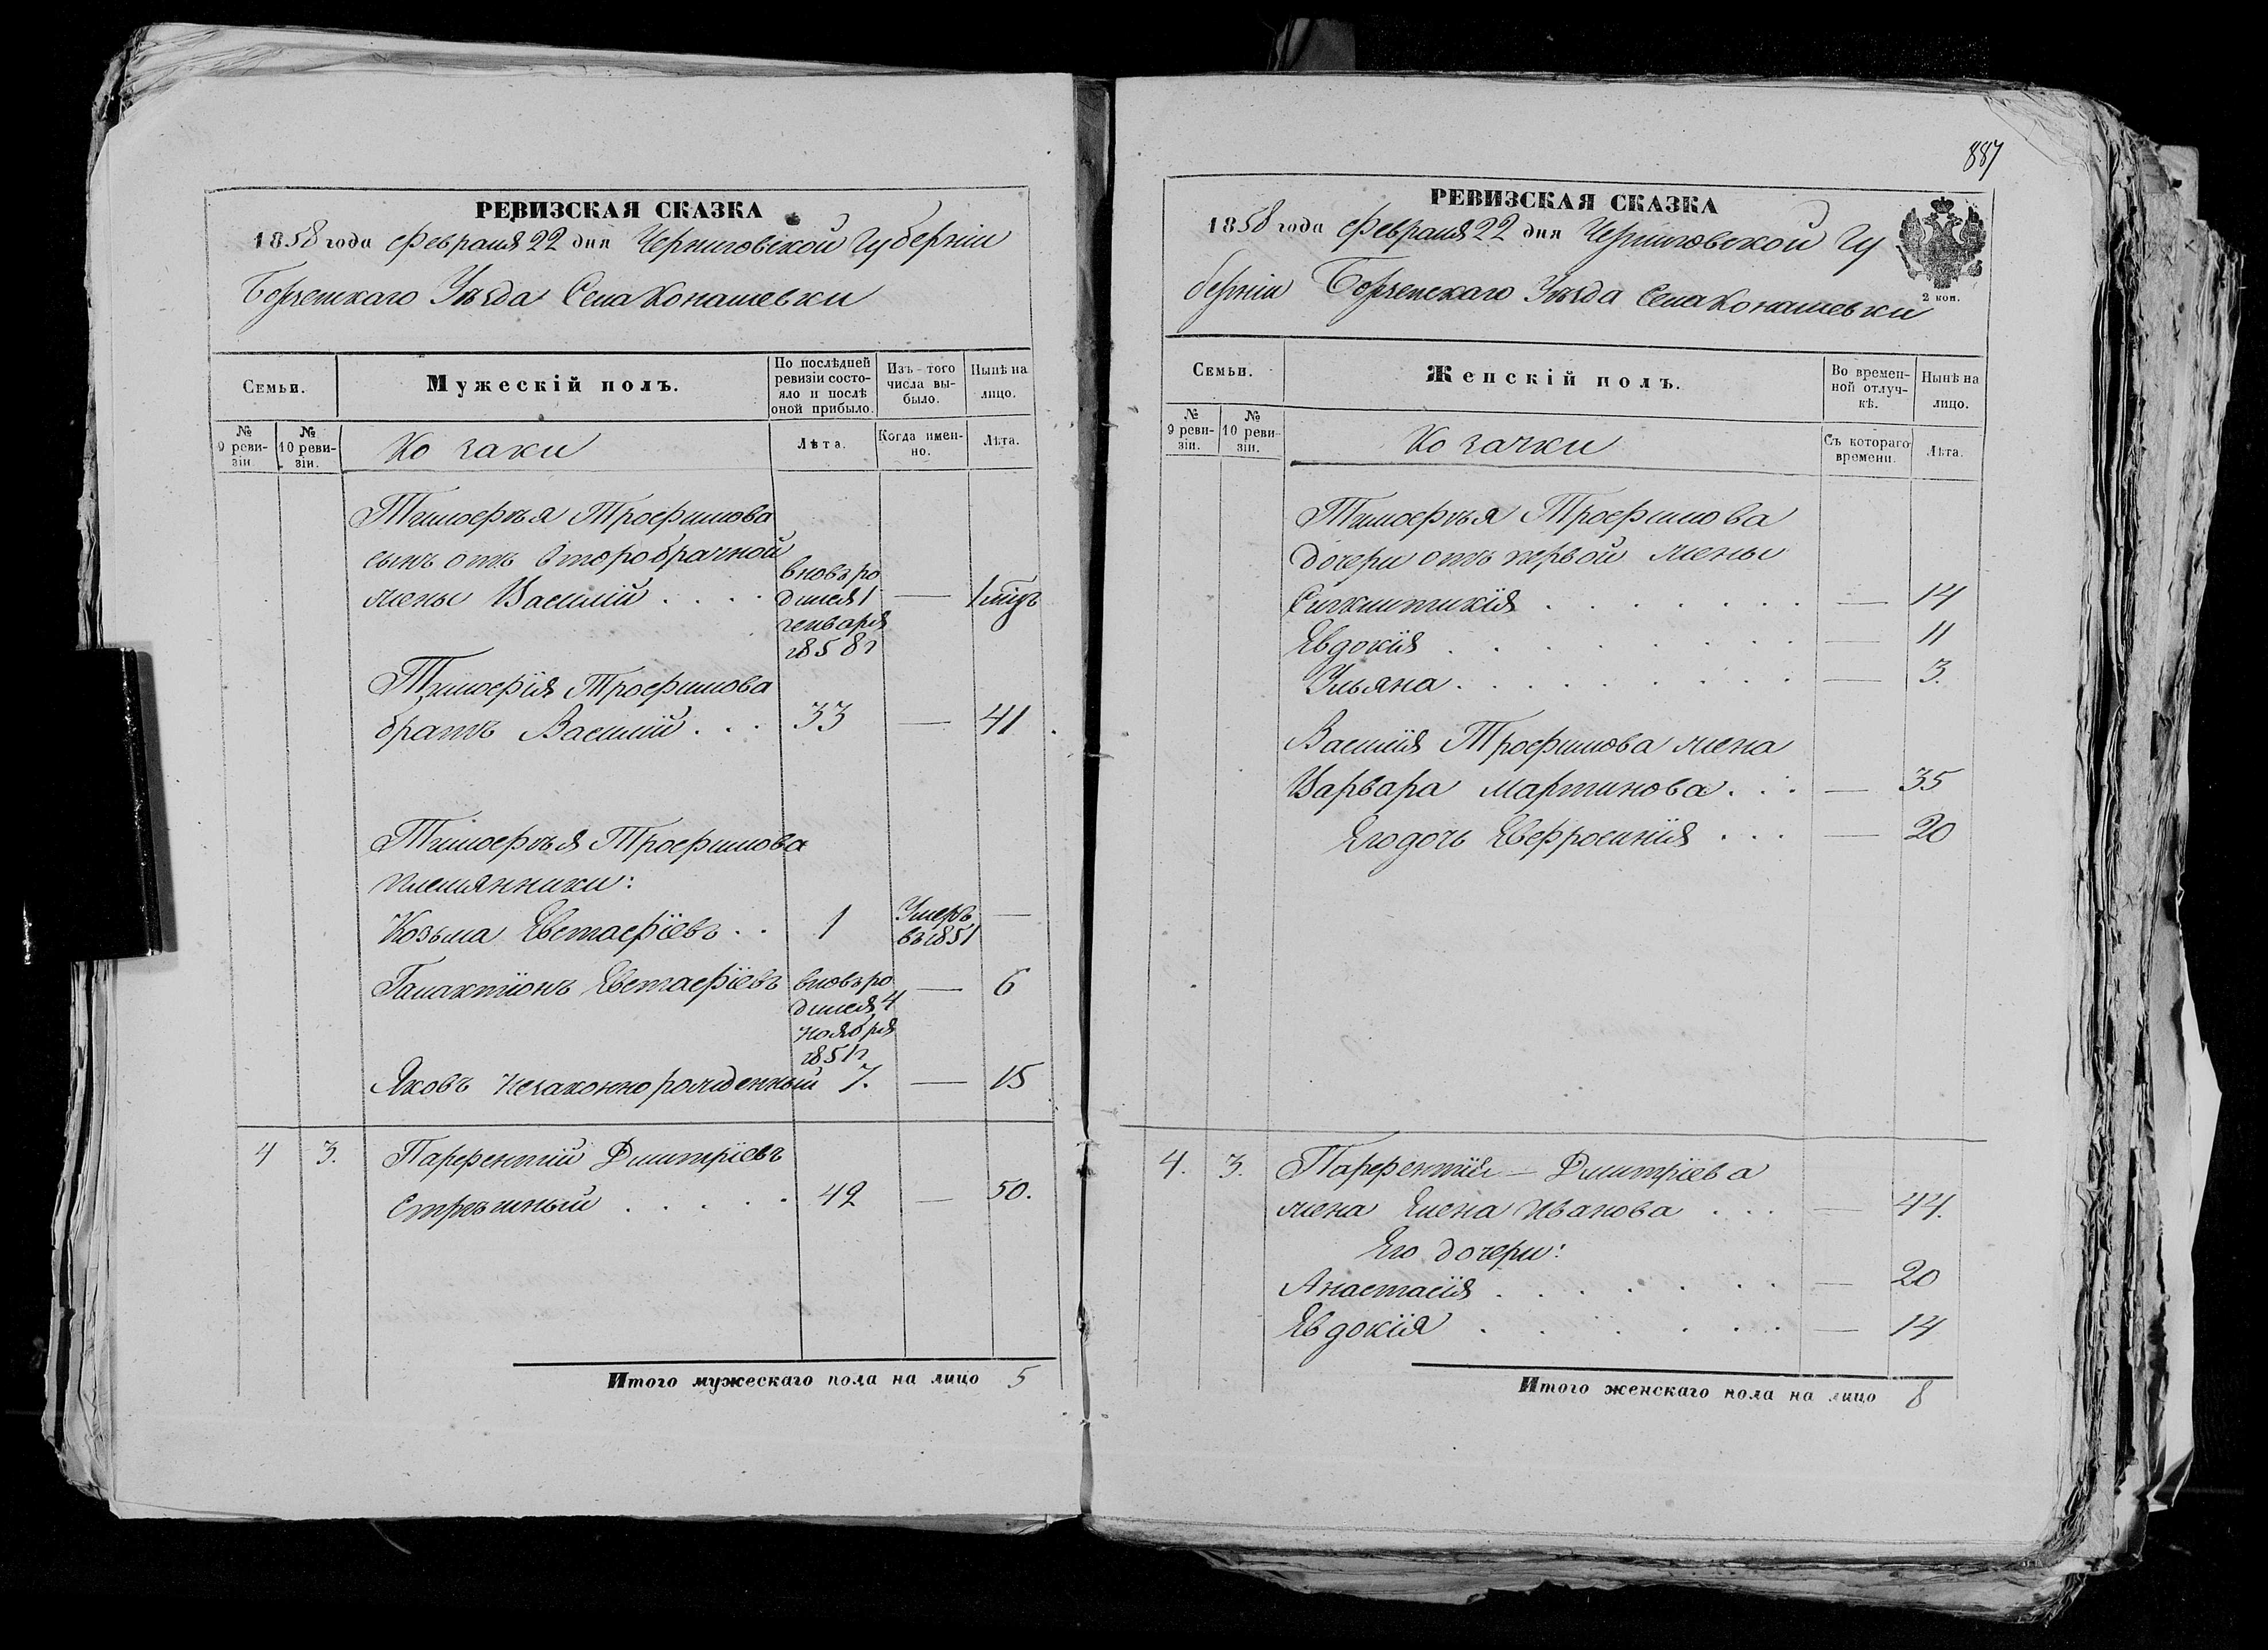 887
РЕВИЗСКАЯ СКАЗКА
1858 года Февраля 22 дня Черниговской Губерніи
Борзенскаго Уѣзда Села Конашевки
Семьи.
Мужескій полъ.
По послѣдней ревизіи состояло и послѣ оной прибыло.
Изъ-того числа выбыло.
Нынѣ на лицо.
№ 9 ревизіи
№ 10 ревизіи.
Козаки
Лѣта.
Когда именно.
Лѣта.
Тимофѣя Трофимова
сынъ отъ второбрачной
жены Василій . . . . вновь родился 1 генваря 1858 г — 1 мѣц
Тимофія Трофимова
братъ Василій . . . 33 — 41
Тимофѣя Трофимова
племянники:
Козьма Евстафіевъ . . 1 Умеръ въ 1851 —
Галактіонъ Евстафіевъ вновь родился 4 ноября 1851 г — 6
Яковъ незаконно рожденный 7. — 15
4 3. Парфентій Дмитріевъ
Стрѣжный . . . . . 42 — 50.
Итого мужескаго пола на лицо 5
РЕВИЗСКАЯ СКАЗКА
1858 года Февраля 22 дня Черниговской Гу
берніи Борзенскаго Уѣзда Села Конашевки
2 коп.
Семьи.
Женскій полъ.
Во временной отлучкѣ.
Нынѣ на лицо.
№ 9 ревизіи.
№ 10 ревизіи.
Козачки
Съ котораго времени.
Лѣта.
Тимофѣя Трофимова
дочери отъ первой жены
— 14
Евдокія . . . . . . . . — 11
Ульяна . . . . . . . . — 3.
Василія Трофимова жена
Варвара Мартинова . . . — 35
Его дочь Евфросинія . . . — 20
4. 3. Парфентія — Дмитріева
жена Елена Иванова . . . — 44.
Его дочери:
Анастасія . . . . . . . — 20
Евдокія . . . . . . . — 14
Итого женскаго пола на лицо 8